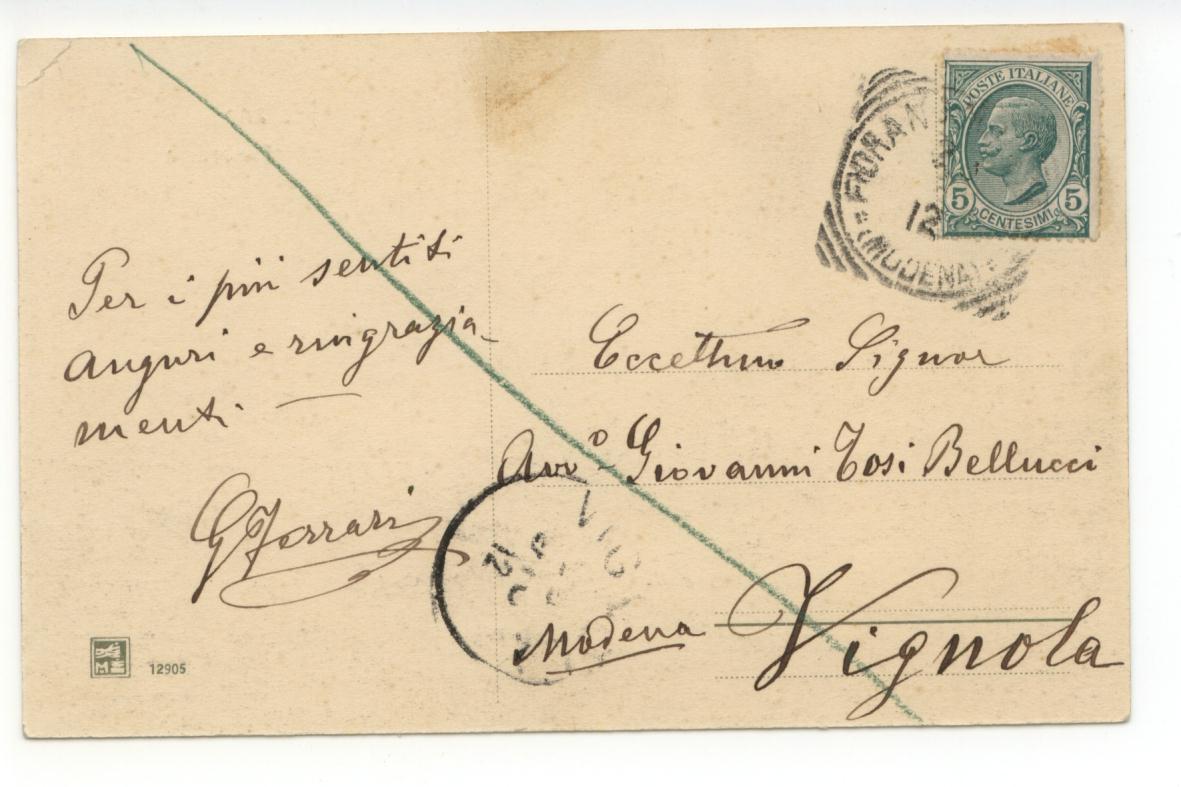 Per i più sentiti
auguri e ringrazia-
menti
G Ferrari
12905
POSTE ITALIANE
5 5
CENTESIMI
FIORAN
12
(MODENA)
Eccellmo Signor
Avvo Giovanni Tosi Bellucci
Vignola
Modena
VIG
12